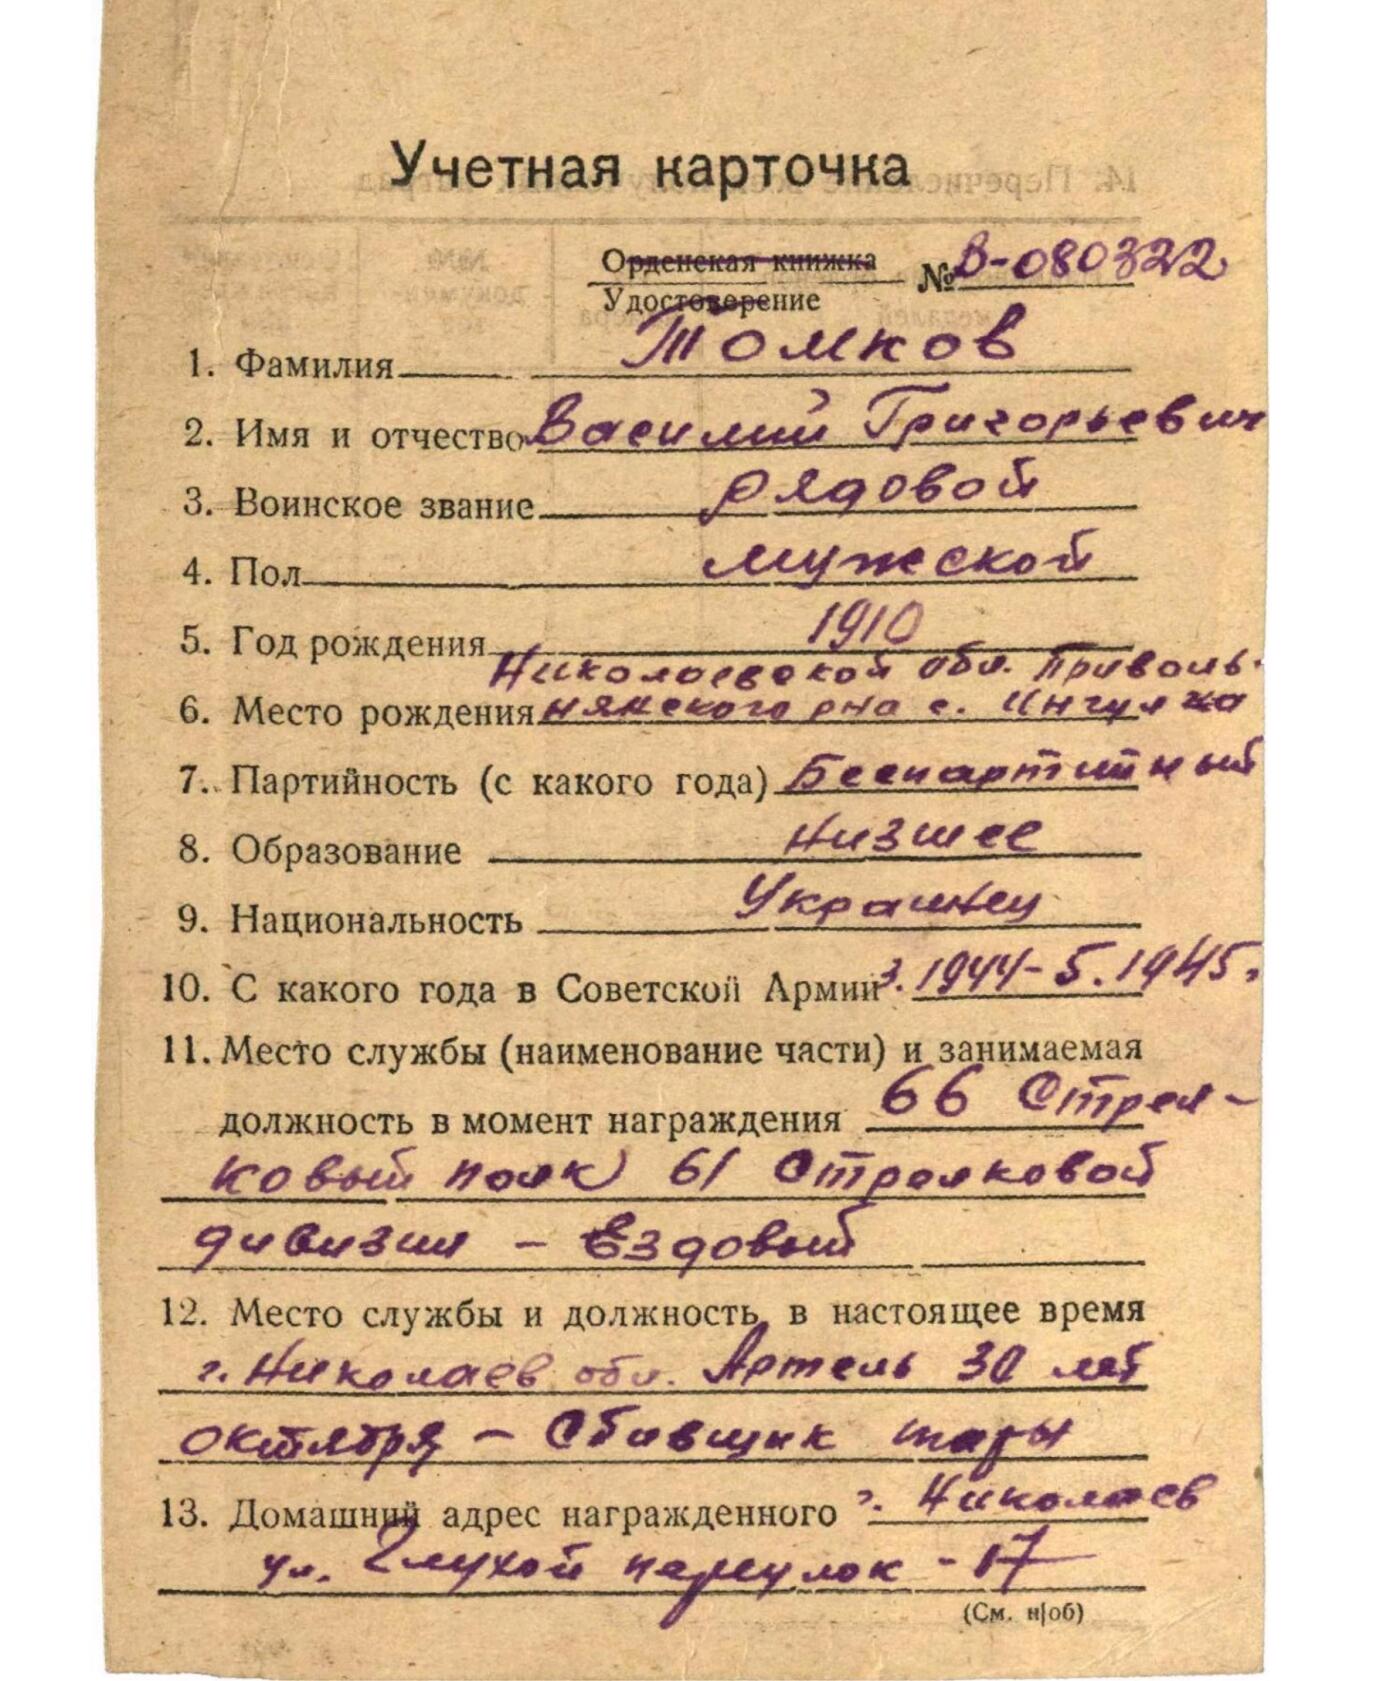 Учетная карточка
Орденская книжка
Удостоверение № В-080322
1. Фамилия Томков
2. Имя и отчество Василий Григорьевич
3. Воинское звание рядовой
4. Пол мужской
5. Год рождения 1910
Николаевской обл. Приволь-
6. Место рождения нянского рна с. Ингулка
7. Партийность (с какого года) Беспартийный
8. Образование низшее
9. Национальность Украинец
10. С какого года в Советской Армии 3.1944-5.1945г
11. Место службы (наименование части) и занимаемая
должность в момент награждения 66 Стрел-
ковый полк 61 Стрелковой
дивизии - Ездовый
12. Место службы и должность в настоящее время
г. Николаев обл. Артель 30 лет
октября - Сбивщик тары
13. Домашний адрес награжденного г. Николаев
ул. Глухой переулок - 17
(См. н|об)